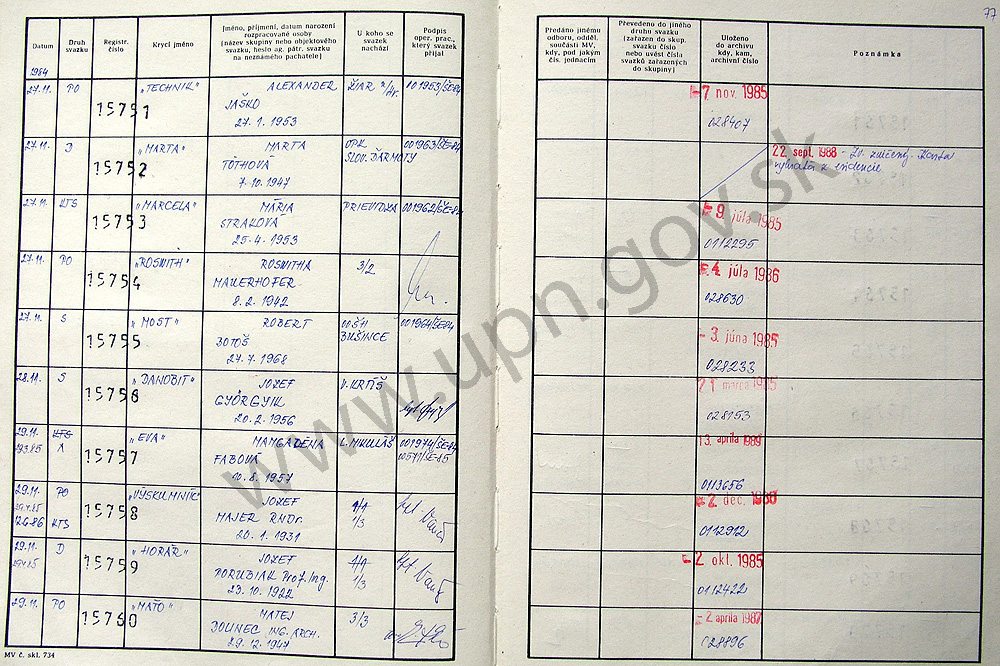 77
Datum
Druh svazku
Registr. číslo
Krycí jméno
Jméno, příjmení, datum narození
rozpracované osoby
(název skupiny nebo objektového
svazku, heslo ag. pátr. svazku
na neznámého pachatele)
U koho se
svazek
nachází
Podpis
oper. prac.,
který svazek
přijal
Předáno jinému
odboru, odděl.
součásti MV,
kdy, pod jakým
čís. jednacím
Převedeno do jiného
druhu svazku
(zařazen do skup.
svazku číslo
nebo uvést čísla
svazků zařazených
do skupiny)
Uloženo
do archivu
kdy, kam,
archivní číslo
Poznámka
1984
27.11. PO 15751 „TECHNIK" ALEXANDER ŽIAR 001953/ŠE-84 7 nov. 1985
JAŠKO
27. 1. 1953 028407
27.11. D 15752 „MARTA" MARTA OPK 001963/ŠE-84 22. sept. 1988
TÓTHOVÁ SLOV. ĎARMOTY
7. 10. 1947
27.11. KTS 15753 „MARCELA" MÁRIA PRIEVIDZA 001962/ŠE-84 9. júla 1985
STRAKOVÁ
25. 4. 1953 0112295
27.11. PO 15754 „ROSWITH" ROSWITHA 3/2 4. júla 1986
MAUERHOFER
8. 2. 1942 028630
27.11. S 15755 „MOST" ROBERT OO ŠTB 001964/ŠE-84 3. júna 1985
BOTOŠ BUŠINCE
27. 7. 1968 028233
28.11. S 15756 „DANUBIT" JOZEF V. KRTÍŠ 21 marca 1985
GYÖRGYIK
20. 2. 1956 028153
29.11. KTS 15757 „EVA" MAGDALÉNA L. MIKULÁŠ 001974/ŠE-84 13. apríla 1989
A FABOVÁ
10. 8. 1957 0113656
29.11. PO 15758 „VÝSKUMNÍK" JOZEF 1/1 2. dec.
12.6.86 KTS MAJER RNDr. 1/3
20. 1. 1931 0112912
29.11. D 15759 „HORÁR" JOZEF 1/1 2. okt. 1985
PORUBIAK Prof. Ing. 1/3
23. 10. 1922 0112422
29.11. PO 15760 „MAŤO" MATEJ 3/3 2 apríla 1987
DOLINEC ING. ARCH.
29. 12. 1947 028896
MV č. skl. 734
www.upn.gov.sk